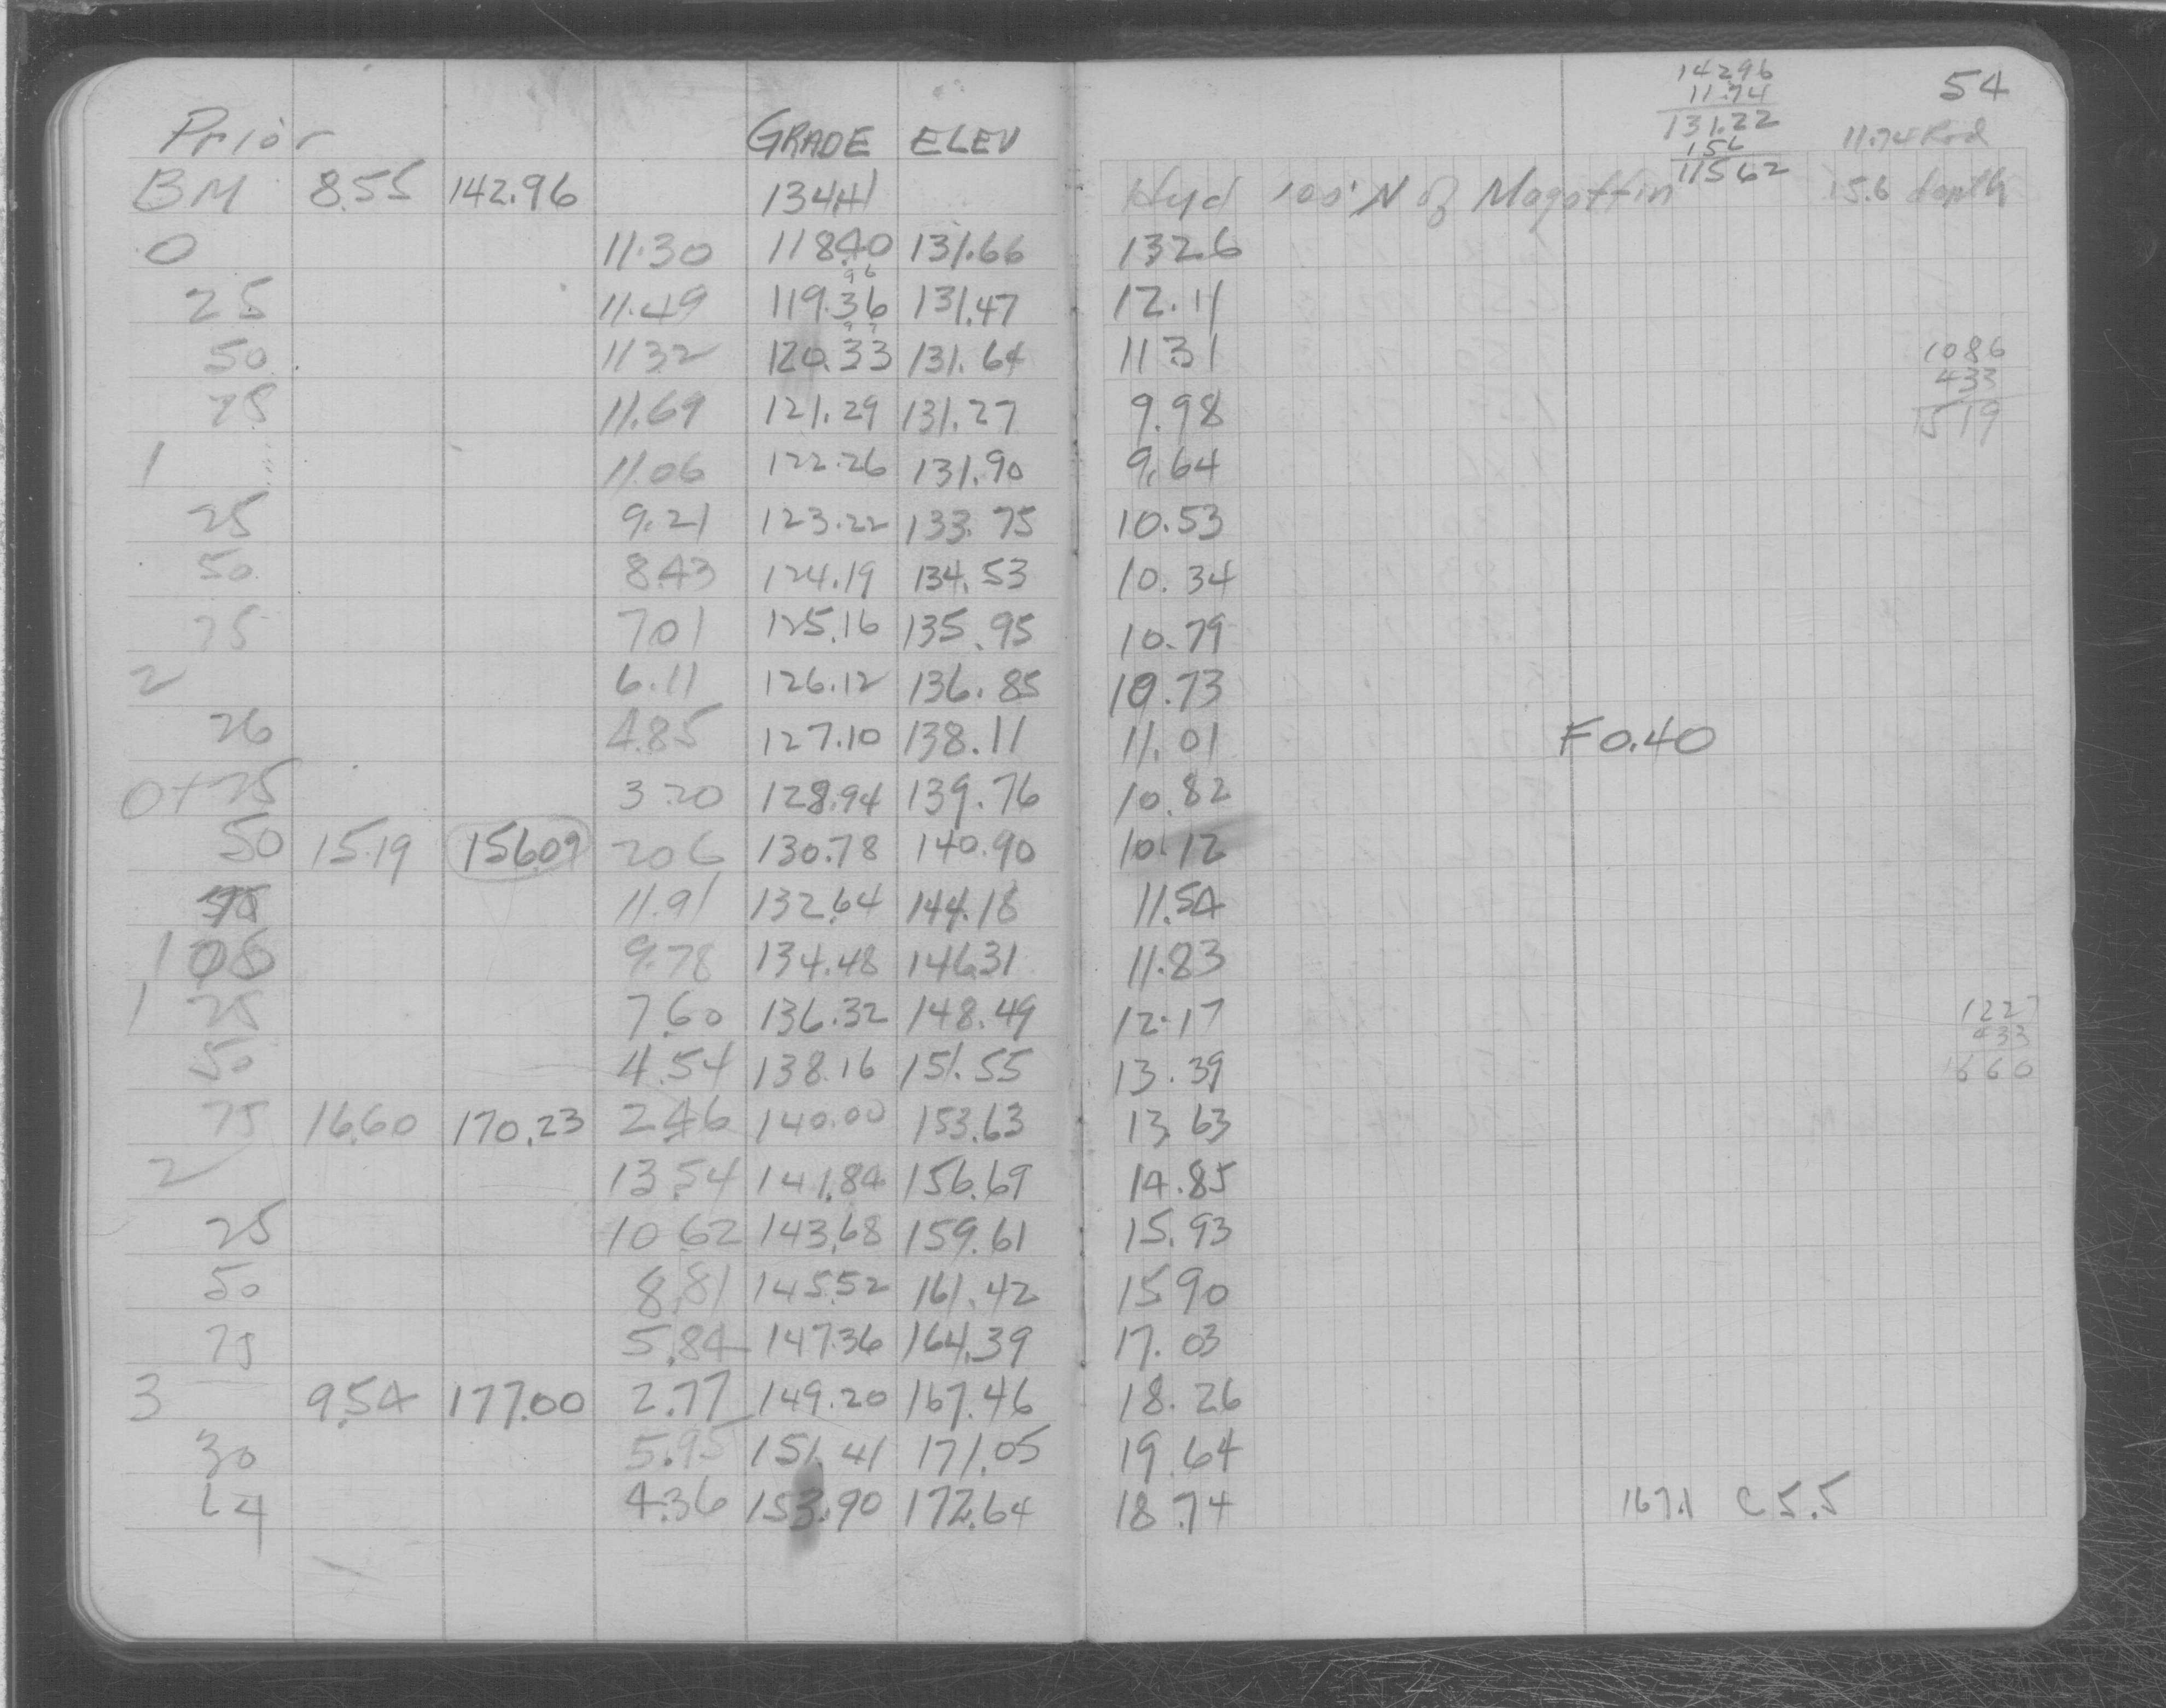 54
14296
11.74
131.22
156
11562
11.74 Rod
15.6 depth
Prior GRADE ELEV
BM 8.55 142.96 134.41 Hyd 100' N of Magoffin
0 11.30 118.40 131.66 132.6
96
25 11.49 119.36 131.47 12.11
50 11 32 120.33 131.64 11 31 1086
433
75 11.69 121.29 131.27 9.98 1519
1 11.06 122.26 131.90 9.64
25 9.21 123.22 133.75 10.53
50 8.43 124.19 134.53 10.34
75 7 01 125.16 135.95 10.79
2 6.11 126.12 136.85 10.73
26 4.85 127.10 138.11 11.01 F 0.40
0+25 3 20 128.94 139.76 10.82
50 15.19 156.09 2 06 130.78 140.90 10.12
11.91 132.64 144.18 11.54
1 00 9.78 134.48 146.31 11.83
1 25 7.60 136.32 148.49 12.17 1227
433
50 4.54 138.16 151.55 13.39 1660
75 16.60 170.23 2.46 140.00 153.63 13.63
2 13.54 141.84 156.69 14.85
25 10 62 143.68 159.61 15.93
50 8.81 145.52 161.42 15 90
75 5.84 147.36 164.39 17.03
3 9.54 177.00 2.77 149.20 167.46 18.26
30 5.95 151.41 171.05 19 64
64 4.36 153.90 172.64 18.74 167.1 C 5.5